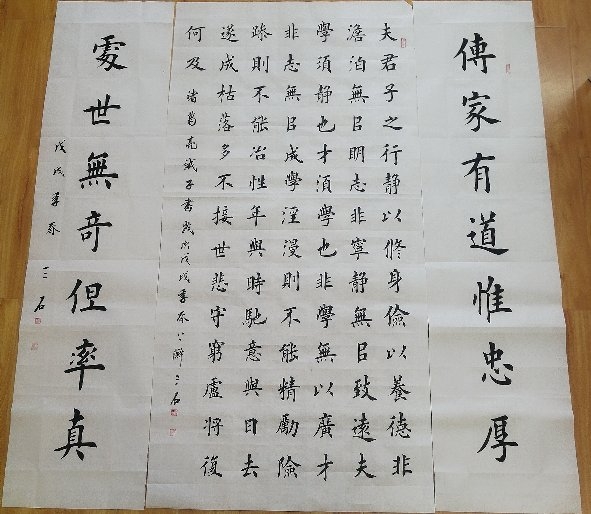 傳家有道惟忠厚
夫君子之行静以修身儉以養德非
澹泊無㠯明志非寧静無㠯致遠夫
學須静也才須學也非學無以廣才
非志無㠯成學淫漫則不能精勵險
躁則不能冶性年與時馳意與日去
遂成枯落多不接世悲守窮廬將復
何及 諸葛亮誡子書歲次戊戌季春 三石
處世無奇但率真
戊戌季春 三石